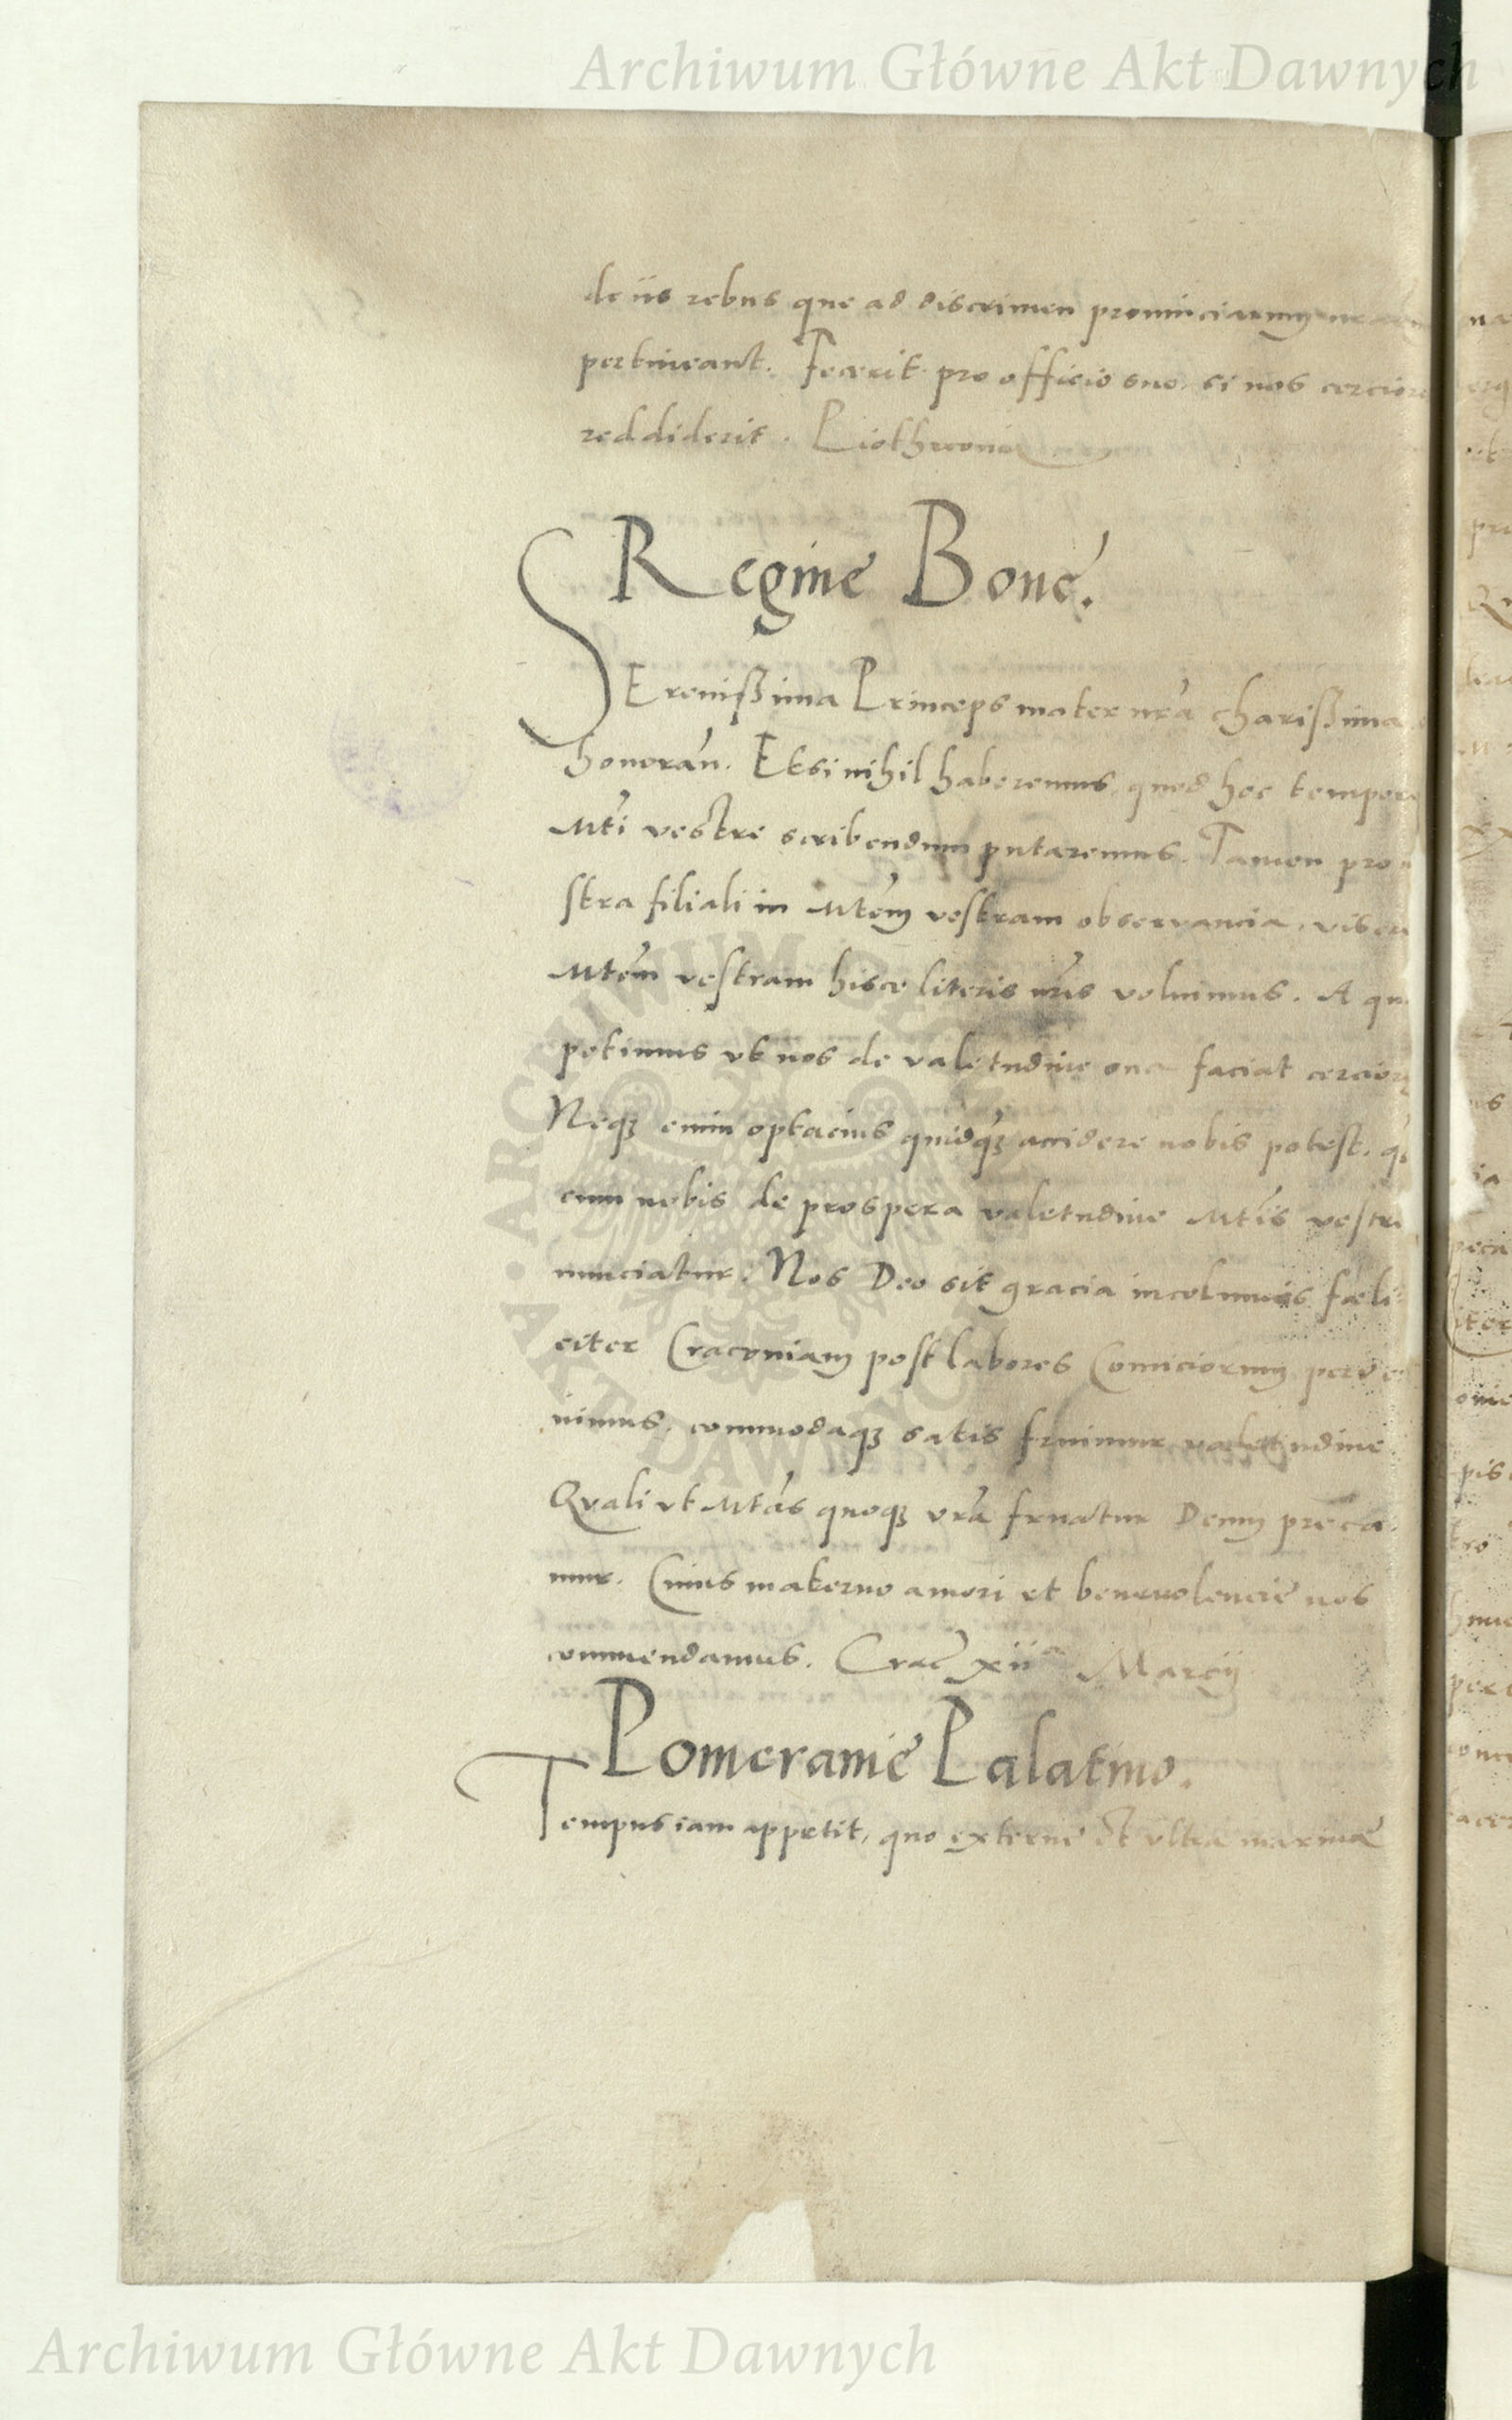 Archiwum Główne Akt Dawnych
de iis rebus que ad discrimen prouinciarum
pertineant. Fecerit pro officio suo, si nos cercio
reddiderit. Piothrconie
Regine Bone.
SErenissima Princeps mater nrã charissima
honorañ. Etsi nihil haberemus, quod hoc tempore
Mti vestre scribendum putaremus. Tamen pro
stra filiali in Mtem vestram observancia, viser
Mtem vestram hisce literis nris voluimus. A qu
petimus vt nos de valetudine sua faciat cercior
Neqꝫ enim optacius quidqꝫ accidere nobis potest, q
cum nobis de prospera valetudine Mtis vestre
nunciatur. Nos Deo sit gracia incolumes fæli
citer Cracouiam post labores Comiciorum perve
nimus, commodaqꝫ satis fruimur valetudine
Quali vt Mtas quoqꝫ vrã fruatur Deum preca
mur. Cuius materno amori et beneuolencie nos
commendamus. Crac xiiᵃ Marcij
Pomeranie Palatino.
Tempus iam appetit, quo externe et vltra marine
ARCHIWUM GŁÓWNE · AKT DAWNYCH ·
Archiwum Główne Akt Dawnych